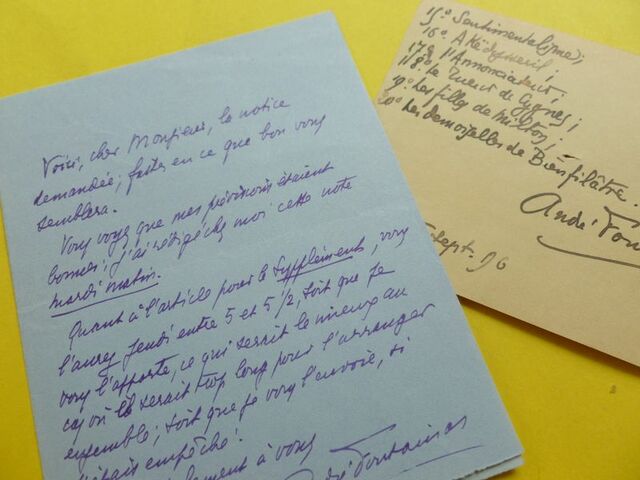 Voici, cher Monsieur, la notice
demandée; faites en ce que bon vous
semblera.
Vous voyez que mes prévisions étaient
bonnes; j'ai rédigé chez moi cette note
mardi matin.
Quant à l'article pour le Supplément, vous
l'aurez Jeudi entre 5 et 5 1/2, soit que je
vous l'apporte, ce qui serait le mieux au
cas où il serait trop long pour l'arranger
ensemble; soit que je vous l'envoie, si
j'étais empêché.
à vous
André Fontainas
15º Sentimentalisme;
16º Akëdysséril;
17º l'Annonciateur;
18º Le Tueur de Cygnes;
19º Les filles de Milton;
20º Les Demoiselles de Bienfilâtre.
André Fon
Sept. 96